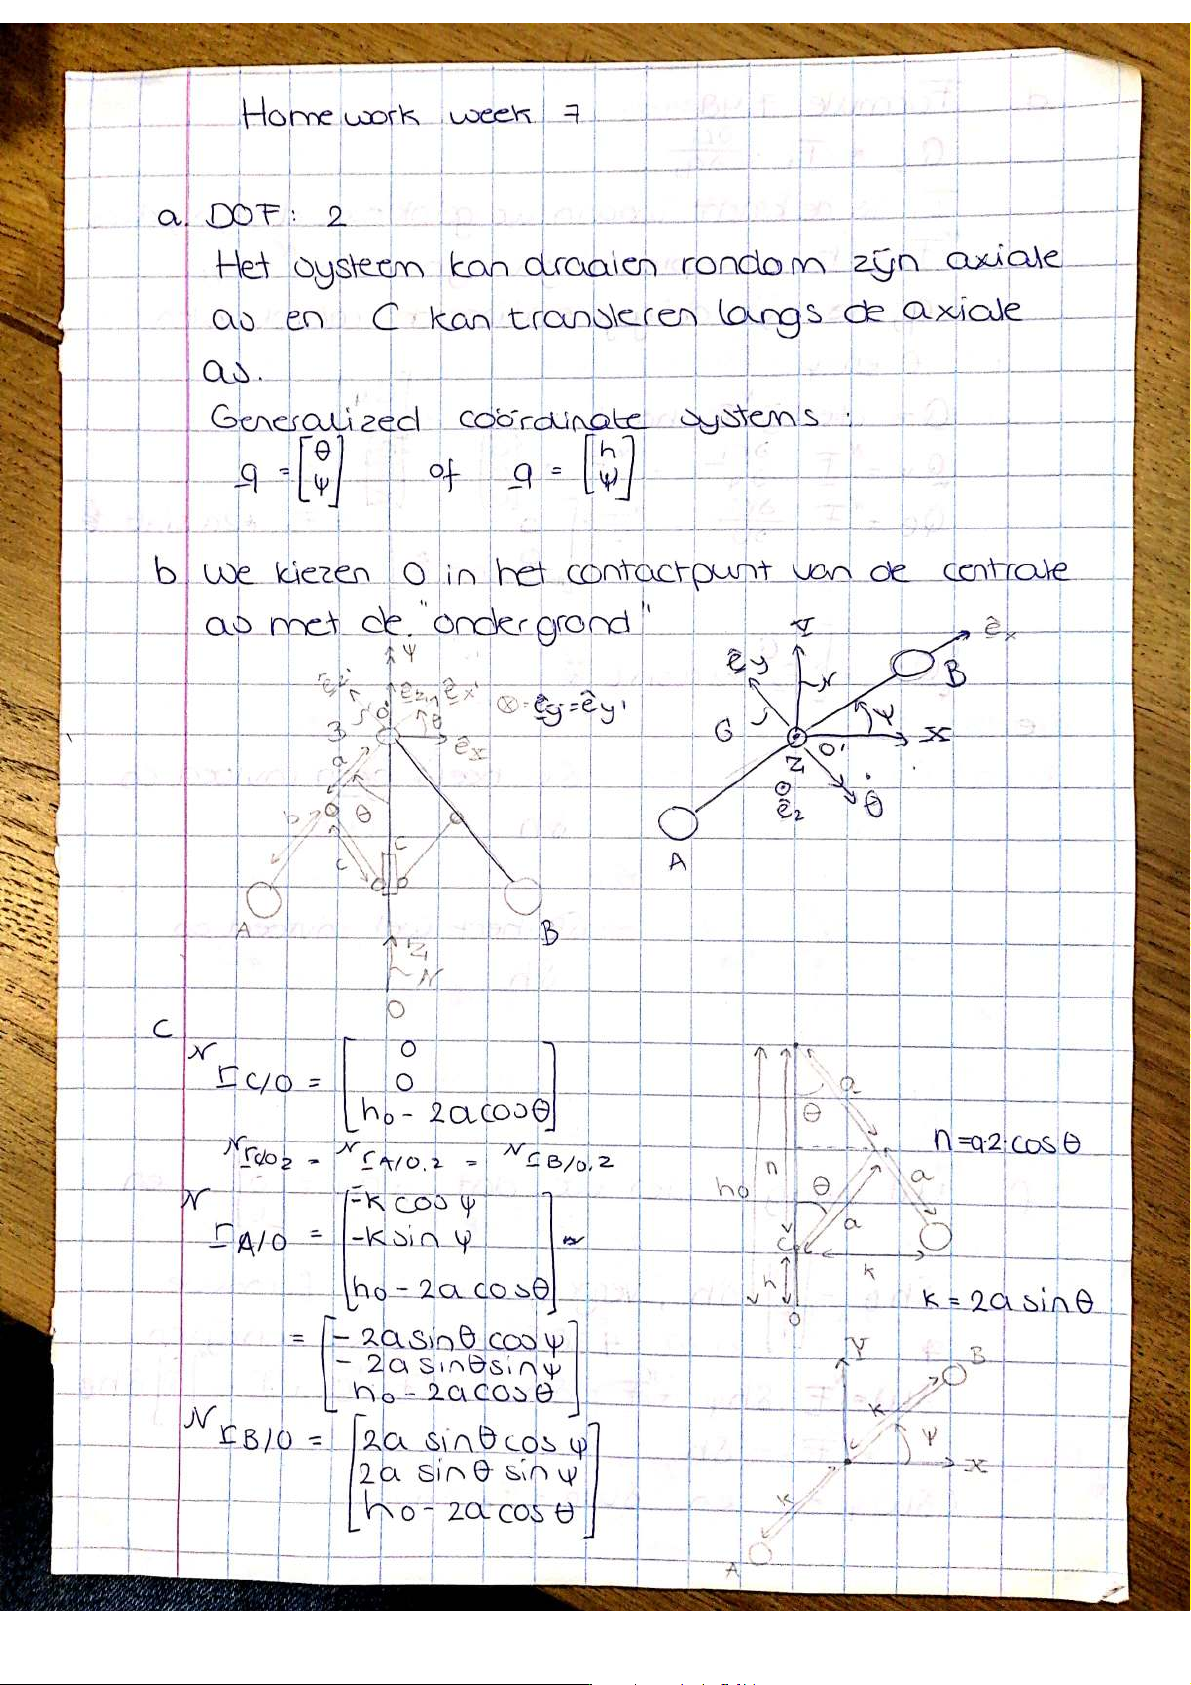 Homework week 7
a. DOF: 2
Het systeem kan draaien rondom zijn axiale
as en C kan transleren langs de axiale
as.
Generalized coördinate systems:
q = [θ ψ] of q = [h ψ]
b We kiezen O in het contactpunt van de centrale
as met de "ondergrond"
ψ
êz, êx'
⊗ = êy = êy'
O'
B
θ
êx
a
b
θ
c
C
A
B
Z
N
O
Y
êx
êy
N
B
G
ψ
X
O'
Z
êz
θ̇
A
C
ᴺr C/O = [0 0 h₀ - 2a cos θ]
ᴺr C/O,z = ᴺr A/O,z = ᴺr B/O,z
ᴺr A/O = [-k cos ψ -k sin ψ h₀ - 2a cos θ]
= [-2a sin θ cos ψ -2a sin θ sin ψ h₀ - 2a cos θ]
ᴺr B/O = [2a sin θ cos ψ 2a sin θ sin ψ h₀ - 2a cos θ]
a
θ
n = a·2·cos θ
h₀
n
θ
a
a
C
k
h
O
k = 2a sin θ
Y
B
k
ψ
X
k
A